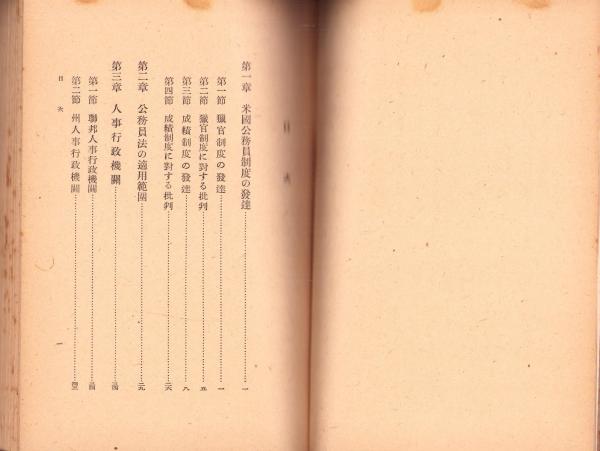 目次
第一章 米國公務員制度の發達……一
第一節 獵官制度の發達……一
第二節 獵官制度に對する批判……五
第三節 成績制度の發達……八
第四節 成績制度に對する批判……二六
第二章 公務員法の適用範圍……二九
第三章 人事行政機關
第一節 聯邦人事行政機關
第二節 州人事行政機關
目次